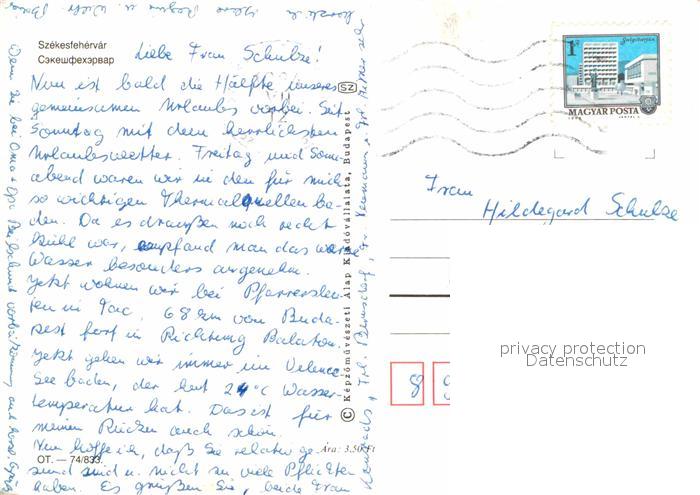 Székesfehérvár
Сэкешфехэрвар
Liebe Frau Schulze!
Nun ist bald die Hälfte unseres
gemeinsamen Urlaubs vorbei. Seit
Sonntag mit dem herrlichsten
Urlaubswetter. Freitag und Sonn-
abend waren wir in den für mich
so wichtigen Thermalquellen ba-
den. Da es draußen noch recht
kühl war, empfand man das warme
Wasser besonders angenehm.
Jetzt wohnen wir bei Pfarrersleu-
ten in Tac, 68 km von Buda-
pest fort in Richtung Balaton.
Jetzt gehen wir immer im Velence
See baden, der hat 24°C Wasser-
temperatur hat. Das ist für
meinen Rücken auch schön.
Nun hoffe ich, daß Sie relativ ge-
sund sind u. nicht zu viele Pflichten
haben. Es grüßen Sie, beide Frau
OT. — 74/833.
Ára: 3.50 Ft
© Képzőművészeti Alap Kiadóvállalata, Budapest
SZ
1 Ft
Salgótarján
MAGYAR POSTA
Frau
Hildegard Schulze
8 9
privacy protection
Datenschutz